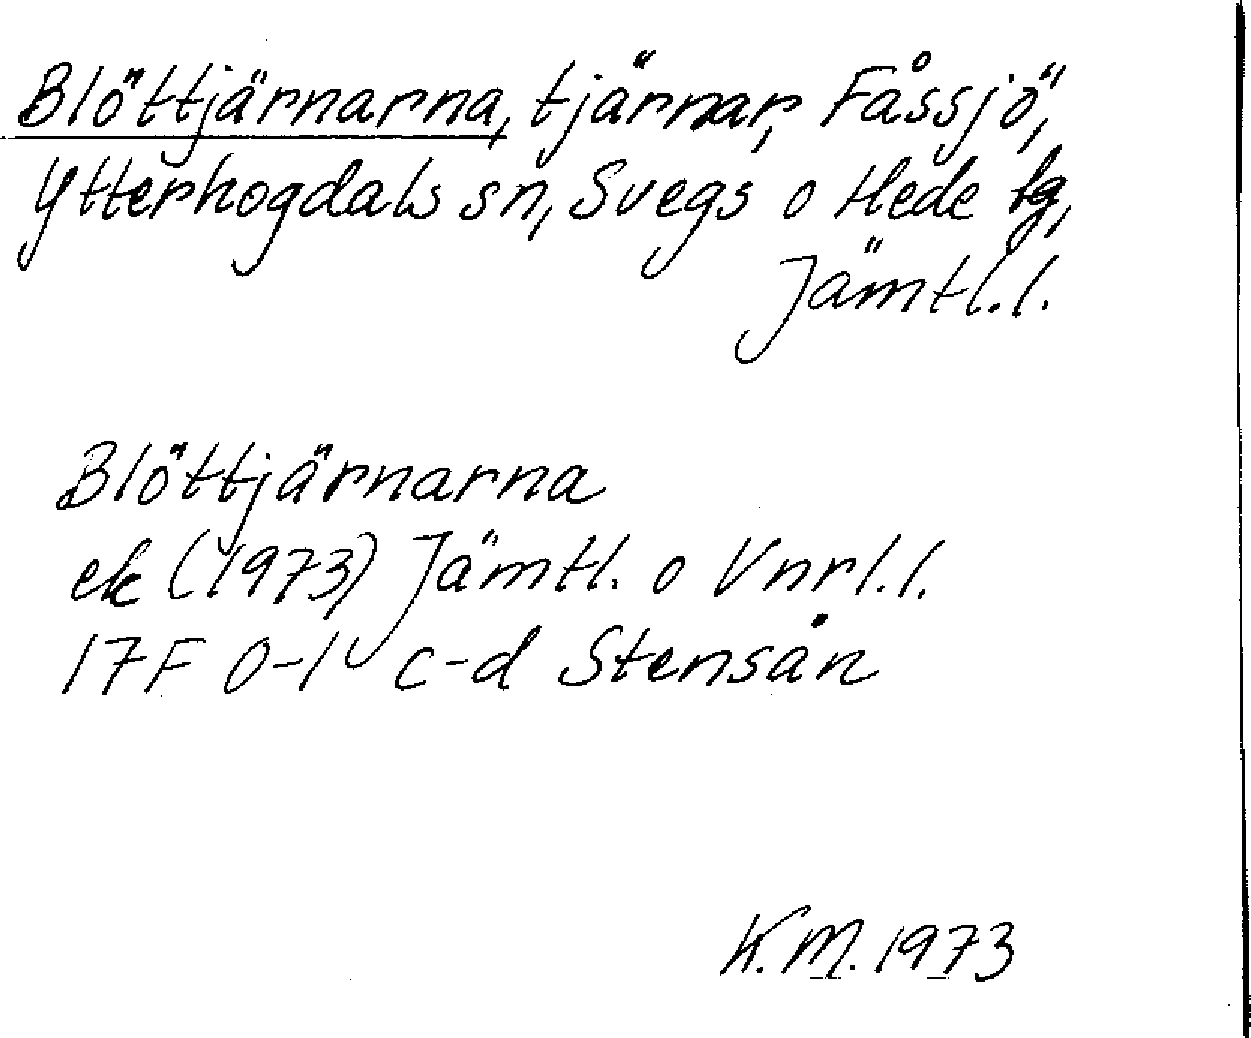 Blöttjärnarna, tjärnar, Fåssjö,
Ytterhogdals sn, Svegs o Hede tg,
Jämtl.l.
Blöttjärnarna
ek (1973) Jämtl. o Vnrl.l.
17F 0-1 c-d Stensån
K.M. 1973